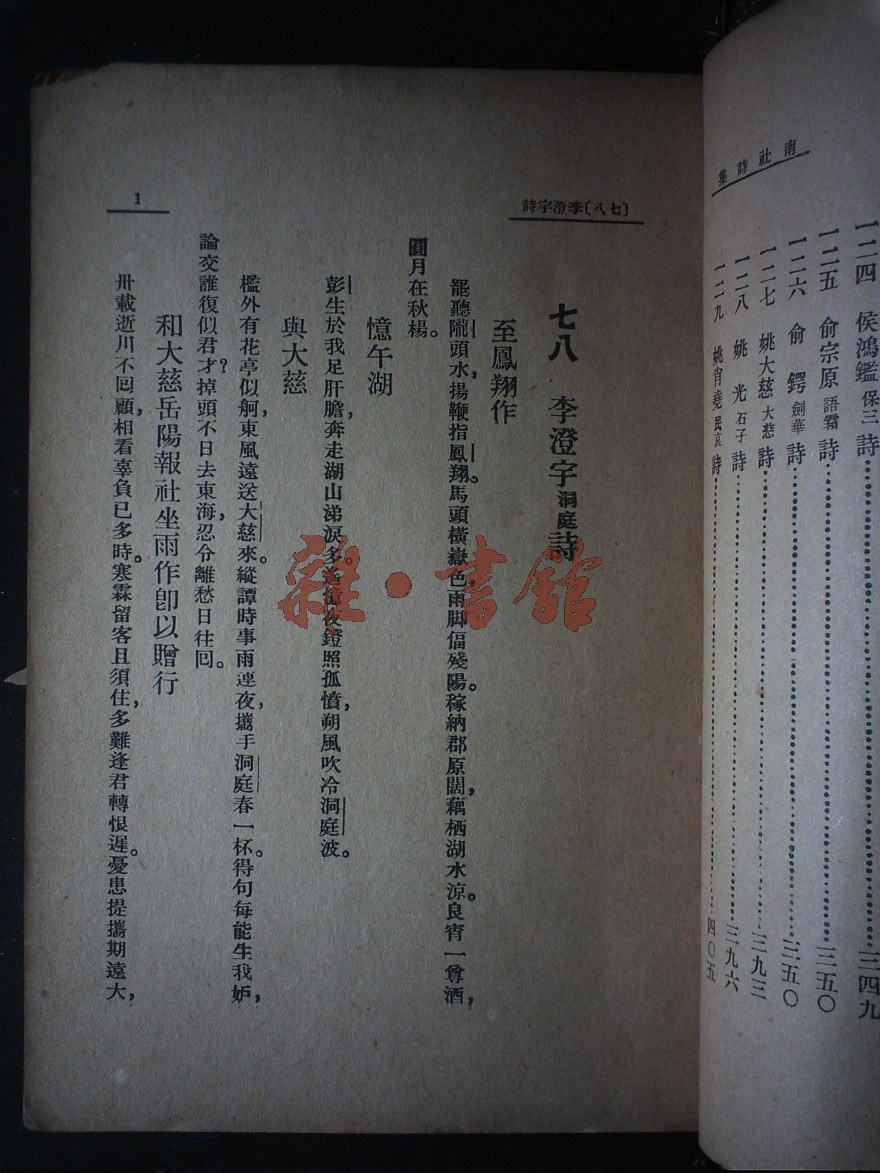 南社詩集
一二四 侯鴻鑑 保三 詩……三四九
一二五 俞宗原 語霜 詩……三五〇
一二六 俞鍔 劍華 詩……三五〇
一二七 姚大慈 大慈 詩……三九三
一二八 姚光 石子 詩……三九六
一二九 姚肖堯 民哀 詩……四〇五
(七八)李澄宇詩
1
七八 李澄宇 洞庭 詩
至鳳翔作
罷聽隴頭水，揚鞭指鳳翔。馬頭橫嶽色，雨脚偪殘陽。稼納郡原闊，藕栖湖水涼。良宵一尊酒，
圓月在秋楊。
憶午湖
彭生於我足肝膽，奔走湖山涕淚多。夜鐙照孤憤，朔風吹冷洞庭波。
與大慈
檻外有花亭似舸，東風遠送大慈來。縱譚時事雨連夜，攜手洞庭春一杯。得句每能生我妒，
論交誰復似君才？掉頭不日去東海，忍令離愁日往回。
和大慈岳陽報社坐雨作卽以贈行
卅載逝川不回顧，相看辜負已多時。寒霖留客且須住，多難逢君轉恨遲。憂患提攜期遠大，
雜·書館